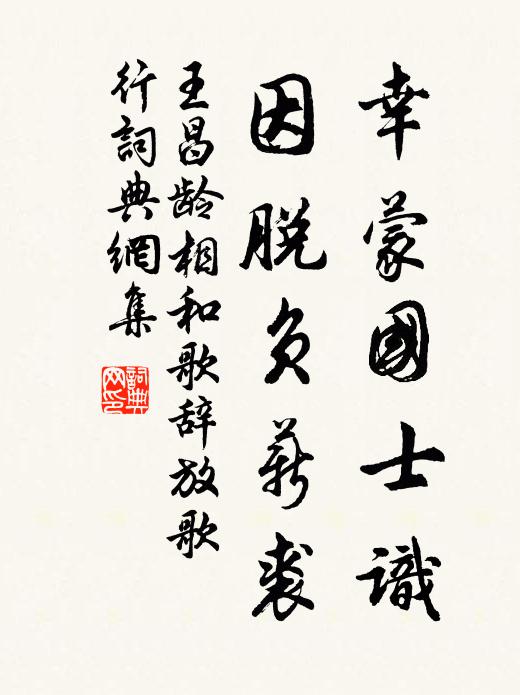 幸蒙國士識
因脫負薪裘
王昌龄相和歌辞放歌
行詞典網集
詞典网印